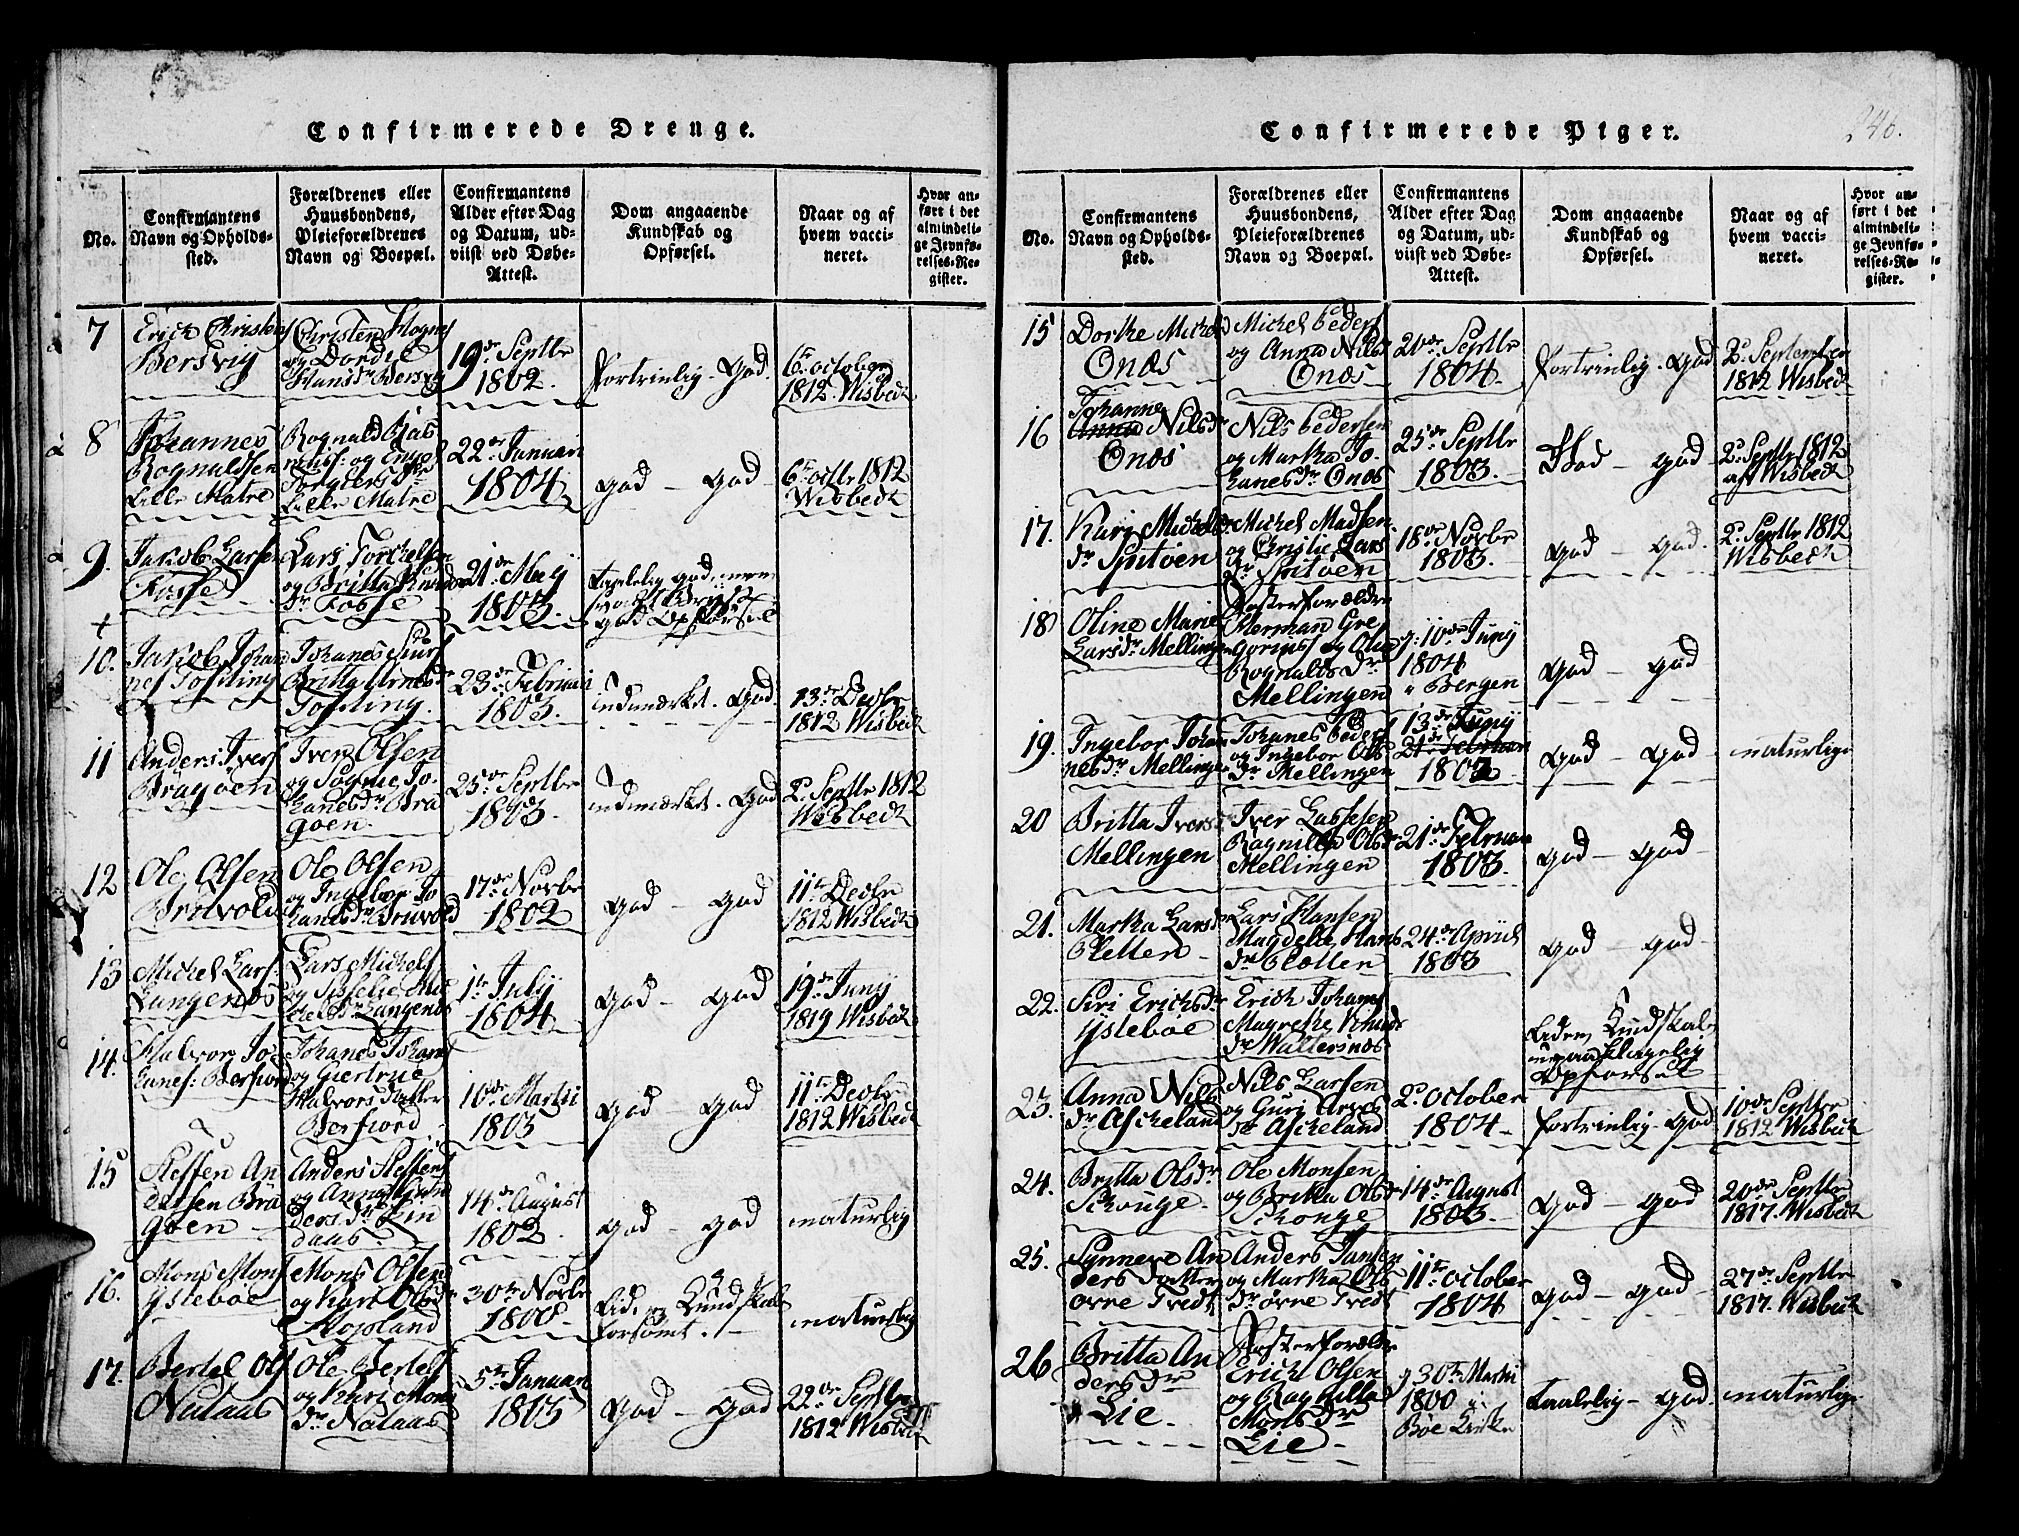 Confirmerede Drenge.
No.
Confirmantens
Navn og Opholds-
sted.
Forældrenes eller
Huusbondens,
Pleieforældrenes
Navn og Boepæl.
Confirmantens
Alder efter Dag
og Datum, ud-
viist ved Døbe-
Attest.
Dom angaaende
Kundskab og
Opførsel.
Naar og af
hvem vacci-
neret.
Hvor an-
ført i det
almindeli-
ge Jevnfø-
relses-Re-
gister.
7
Erich Christens
Bersvig
Christen Mognes
og Dordie
Hansdr Bersvig
19de Septbr
1802.
Fortrinlig. God.
6te october
1812. Wisbech
8
Johannes
Rognaldsen
Lille Matre
Rognald Ras
muss: og Engel
Torgiersdr
Lille Matre
22de Januari
1804
God - God
6te octbr 1812
Wisbech
9.
Jakob Larsen
Fosse
Lars Torchelsen
og Britta Knuds
dr Fosse
21de Maij
1803.
god Opførsel
10.
Jakob Johan
nes Tofting
Johanes Siurs
Britta Arnesdr
Tofting.
23de Februari
1803.
indmærket. God.
13de Decbr
1812 Wisbech
11
Anders Ivers
Bragoen
Iver Olsen
og Sogne Jo
hanesdr Bra
goen
25de Septbr
1803.
indmærket. God
2den Septbr 1812
Wisbech
12
Ole Olsen
Bruvold
Ole Olsen
og Ingebor Jo
hanesdr Bruvold
17de Novbr
1802
God - God
11te Decbr
1812 Wisbech
13
Michel Lars:
Langenæs
Lars Michels
og Sisselie Mi
chelsdr Langenæs
1te Julij
1804
God - God
19de Junij
1819 Wisbech
14.
Halvor Jo
hanes: Børfiord
Johanes Johans
og Giertrue
Halvors Datter
Børfiord
10de Martii
1803
God - God
11te Decbr
1812 Wisbech
15
Steffen An
dersen Bra
goen
Anders Steffens
og Anna An
dersdr Lin
daas
14de August
1802.
God - God
naturlig
16.
Mons Mons
Ysteboe
Mons Olsen
og Kari Olsdr
Hopland
30te Novbr
1800.
Lid. og Kundskab
forsømt.
naturlig
17.
Bertel Ols
Nutaas
Ole Bertels
og Kari Mons
dr Nutaas
5te Januari
1805
God - God
22de Septbr
1812 Wisbech
Confirmerede Piger.
246.
No.
Confirmantens
Navn og Opholds-
sted.
Forældrenes eller
Huusbondens,
Pleieforældrenes
Navn og Boepæl.
Confirmantens
Alder efter Dag
og Datum, ud-
viist ved Døbe-
Attest.
Dom angaaende
Kundskab og
Opførsel.
Naar og af
hvem vacci-
neret.
Hvor an-
ført i det
almindeli-
ge Jevnfø-
relses-Re-
gister.
15
Dorthe Michels
Onæs
Michel Peders
og Anna Nils
Onæs
20de Septbr
1804.
Fortrinlig. God
2den September
1812 Wisbech
16
Johanne
Anna Nilsdr
Onæs
Nils Pedersen
og Martha Jo
hanesdr Onæs
25de Septbr
1803.
God - God
2den Septbr 1812
af Wisbech
17.
Kari Michels
dr Spitøen
Michel Madsen
og Christie Lars
dr Spitøen
18de Novbr
1803.
God - God.
2den Septbr 1812
Wisbech
18
Oline Marie
Larsdr Mellingen
Fosterforældre
Herman Gre
gorius og Olina
Rognaldsdr
Mellingen
f: 10de Junij
1804
i Bergen
God - God
19.
Ingebor Johan
nesdr Mellingen
Johanes Peders
og Ingebor Ols
dr Mellingen
13de Junij
21de Februari
1802
God - God
naturlige
20
Britta Iversdr
Mellingen
Iver Lassesen
Ragnilla Olsdr
Mellingen
21de Februari
1803.
God - God
21.
Martha Larsdr
Pletten
Lars Hansen
Magdelie Hans
dr Pletten
24de Apriil
1803
God - God
22.
Siri Erichsdr
Ysteboe
Erich Johans
Magrethe Knuds
dr Waltersnæs
Liden Kundskab
ogsaa klagelig
Opførsel
23.
Anna Nils
dr Ascheland
Nils Larsen
og Guri Arnes
dr Ascheland
2den October
1804
Fortrinlig - God
10de Septbr
1812 Wisbech
24.
Britta Olsdr
Schouge
Ole Monsen
og Britta Olsdr
Schouge
14de August
1803.
God - God
20de Septbr
1817. Wisbech
25.
Synneve An
ders Datter
Øvre Tvedt
Anders Jansen
og Martha Ols
dr Øvre Tvedt
11te October
1804
God - God
27de Septbr
1817. Wisbech
26
Britta An
dersdr
Lie.
Fosterforældre
Erich Olsen
og Ragnilla
Monsdr
Lie
f 30te Martii
1800 i
Bøe Kirke
Taalelig - God
naturlige